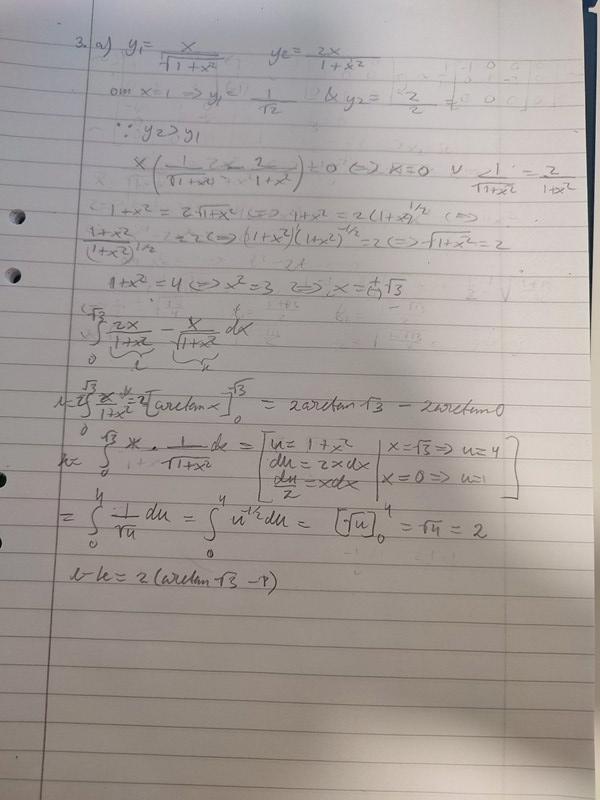 3. a) y₁ = x/√(1+x²)    y₂ = 2x/(1+x²)
om x=1 ⇒ y₁ = 1/√2 & y₂ = 2/2
∵ y₂ > y₁
x(1/√(1+x²) - 2/(1+x²)) = 0 ⇔ x=0 ∨ 1/√(1+x²) = 2/(1+x²)
1+x² = 2√(1+x²) ⇔ 1+x² = 2(1+x²)^1/2 ⇔
(1+x²)/(1+x²)^1/2 = 2 ⇔ (1+x²)(1+x²)^-1/2 = 2 ⇔ √(1+x²) = 2
1+x² = 4 ⇔ x² = 3 ⇔ x = (±)√3
∫₀^√3 2x/(1+x²) - x/√(1+x²) dx
= 2[arctan x]₀^√3 = 2arctan√3 - 2arctan0
k= ∫₀^√3 x · 1/√(1+x²) dx = [u = 1+x² | x=√3 ⇒ u=4
du = 2xdx
du/2 = xdx | x=0 ⇒ u=1]
= ∫₀^4 1/√u du = ∫₀^4 u^-1/2 du = [√u]₀^4 = √4 = 2
l-k = 2(arctan√3 - 1)